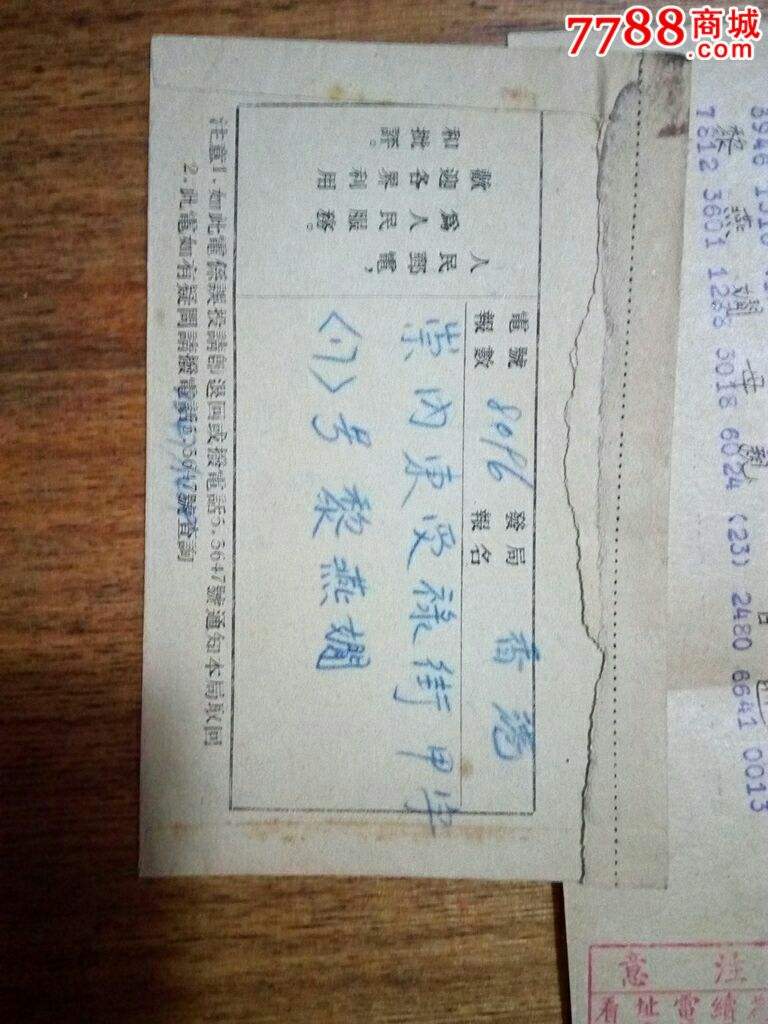 7788商城
.com
人民郵電,
為人民服務。
歡迎各界利用
和批評。
電報號數
發報局名 香港
崇內東受祿街甲字
〈7〉号 黎燕嫻
注意1.如此電係誤投請即退回或撥電話5.5647號通知本局取回
2.此電如有疑問請撥電話5.5647號查詢
黎燕嫻母親
7812 3601 1288 3018 6024 (23) 2480 6641 0013
注意